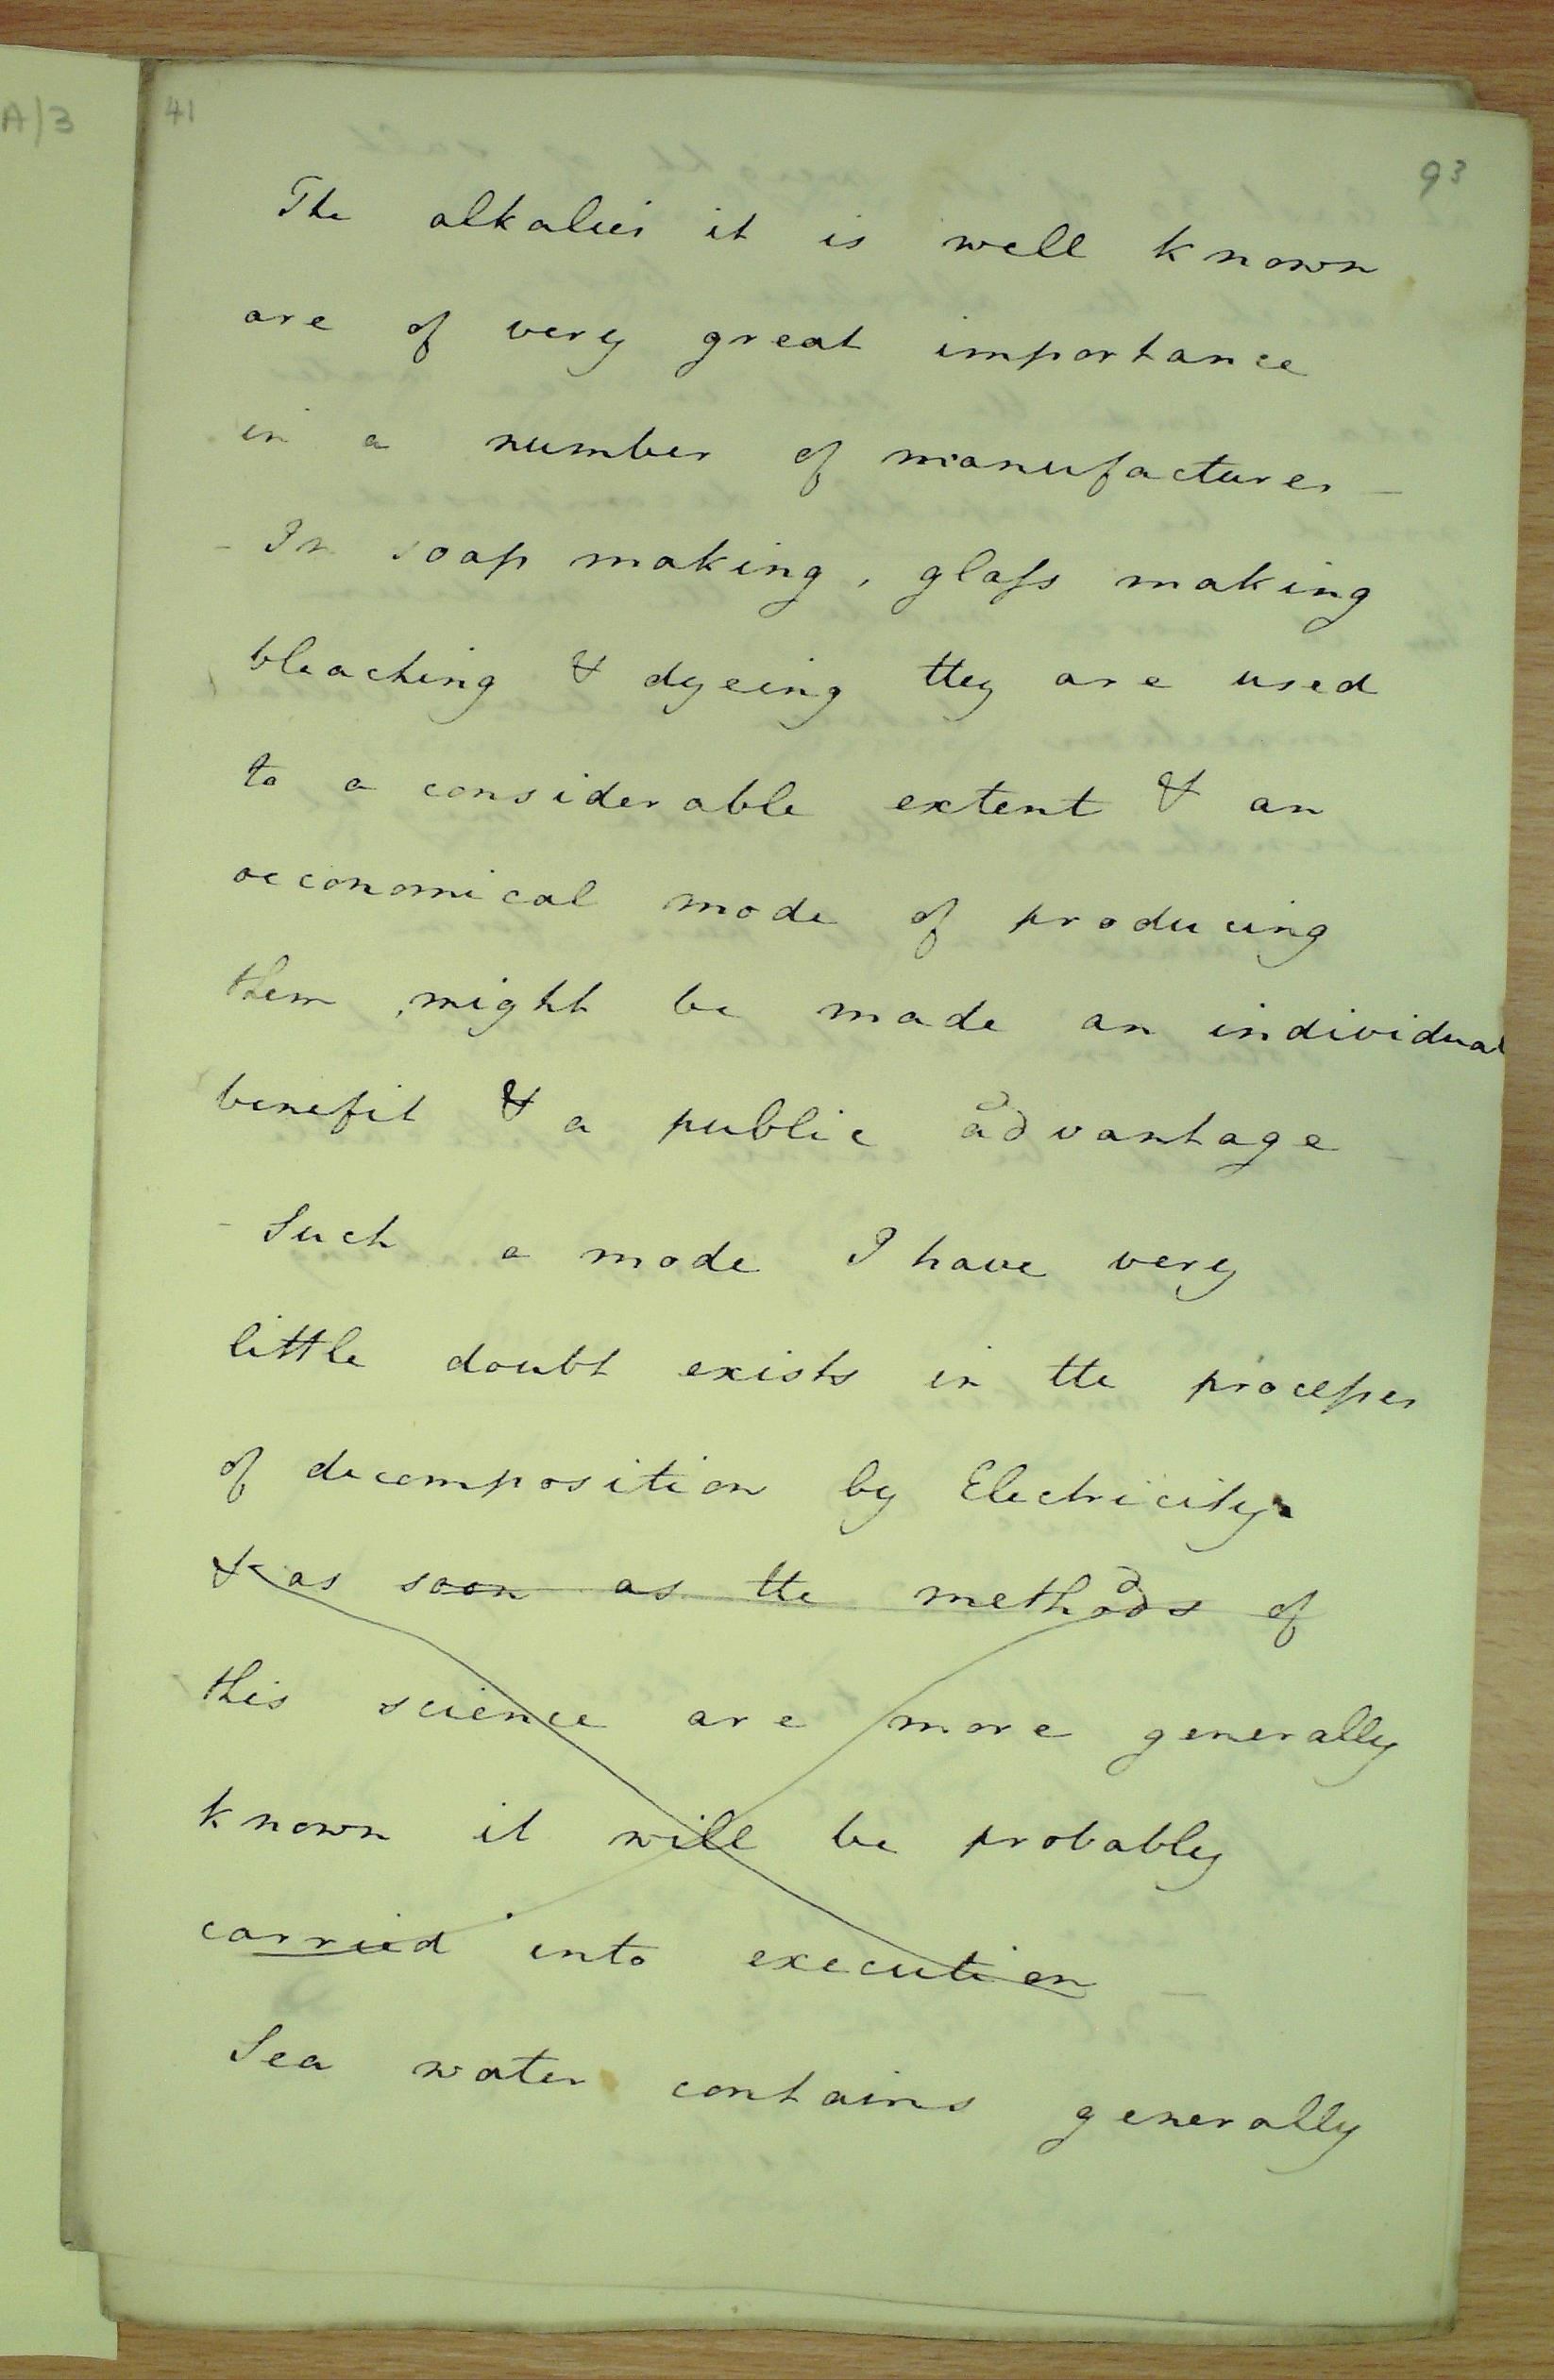 A/3
41
93
The alkalies it is well known
are of very great importance
in a number of manufactures –
– In soap making, glaſs making
bleaching & dyeing they are used
to a considerable extent & an
oeconomical mode of producing
them might be made an individual
benefit & a public advantage
– Such a mode I have very
little doubt exists in the proceſses
of decomposition by Electricity.
& as soon as the methods of
this science are more generally
known it will be probably
carried into execution –
Sea water contains generally